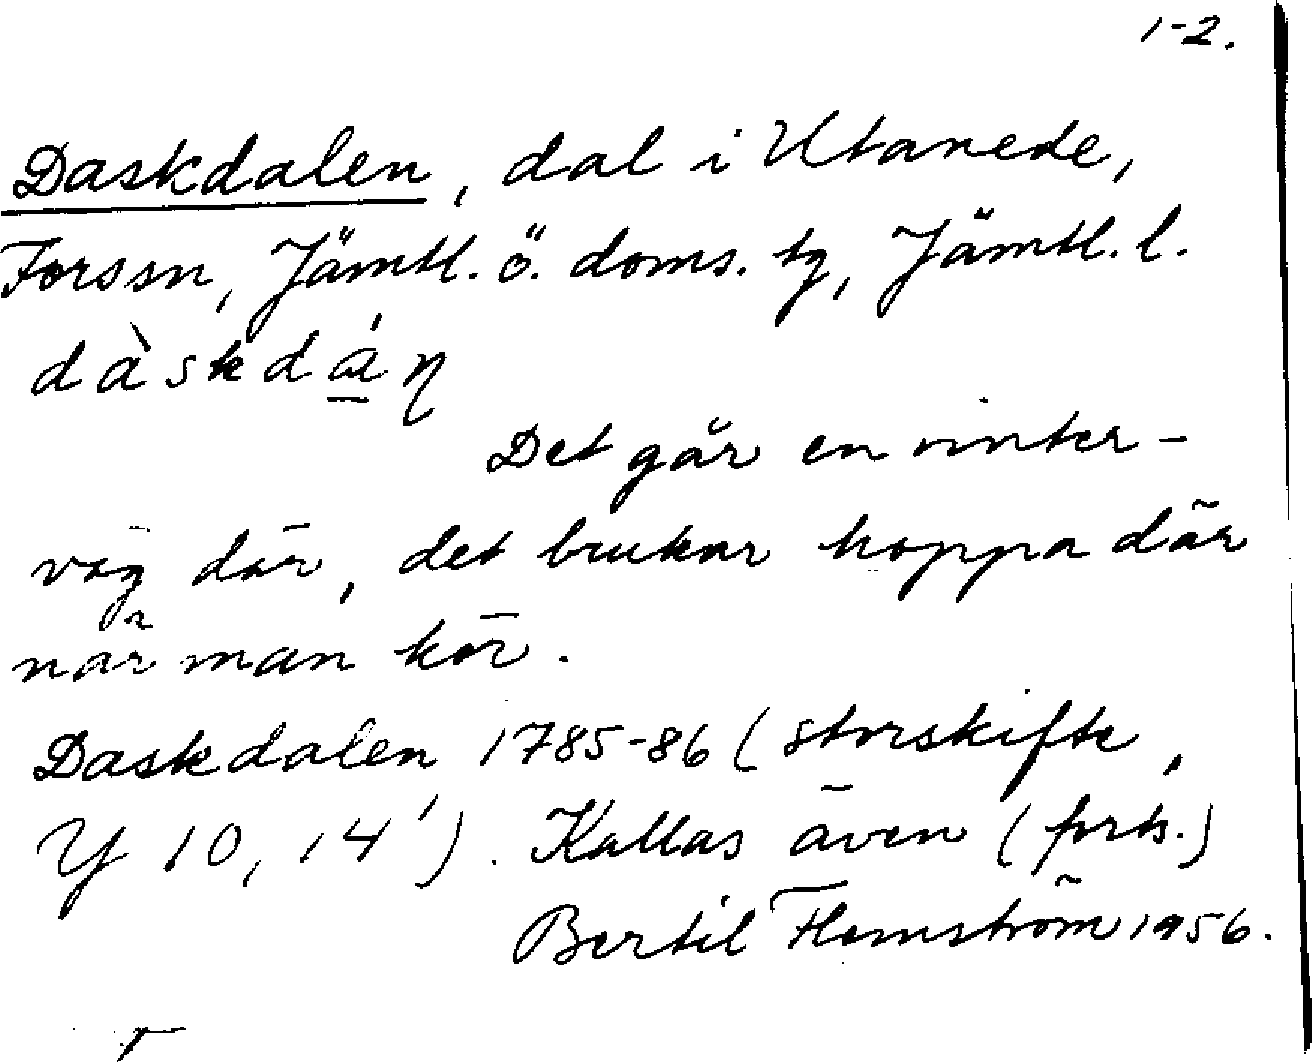 1-2.
Daskdalen, dal i Utanede,
Forssn, Jämtl. ö. doms. tg, Jämtl. l.
dàskdán
Det går en vinter-
väg där, det brukar hoppa där
när man kör.
Daskdalen 1785-86 (storskifte,
Y 10, 14'). Kallas även (forts.)
Bertil Flemström 1956.